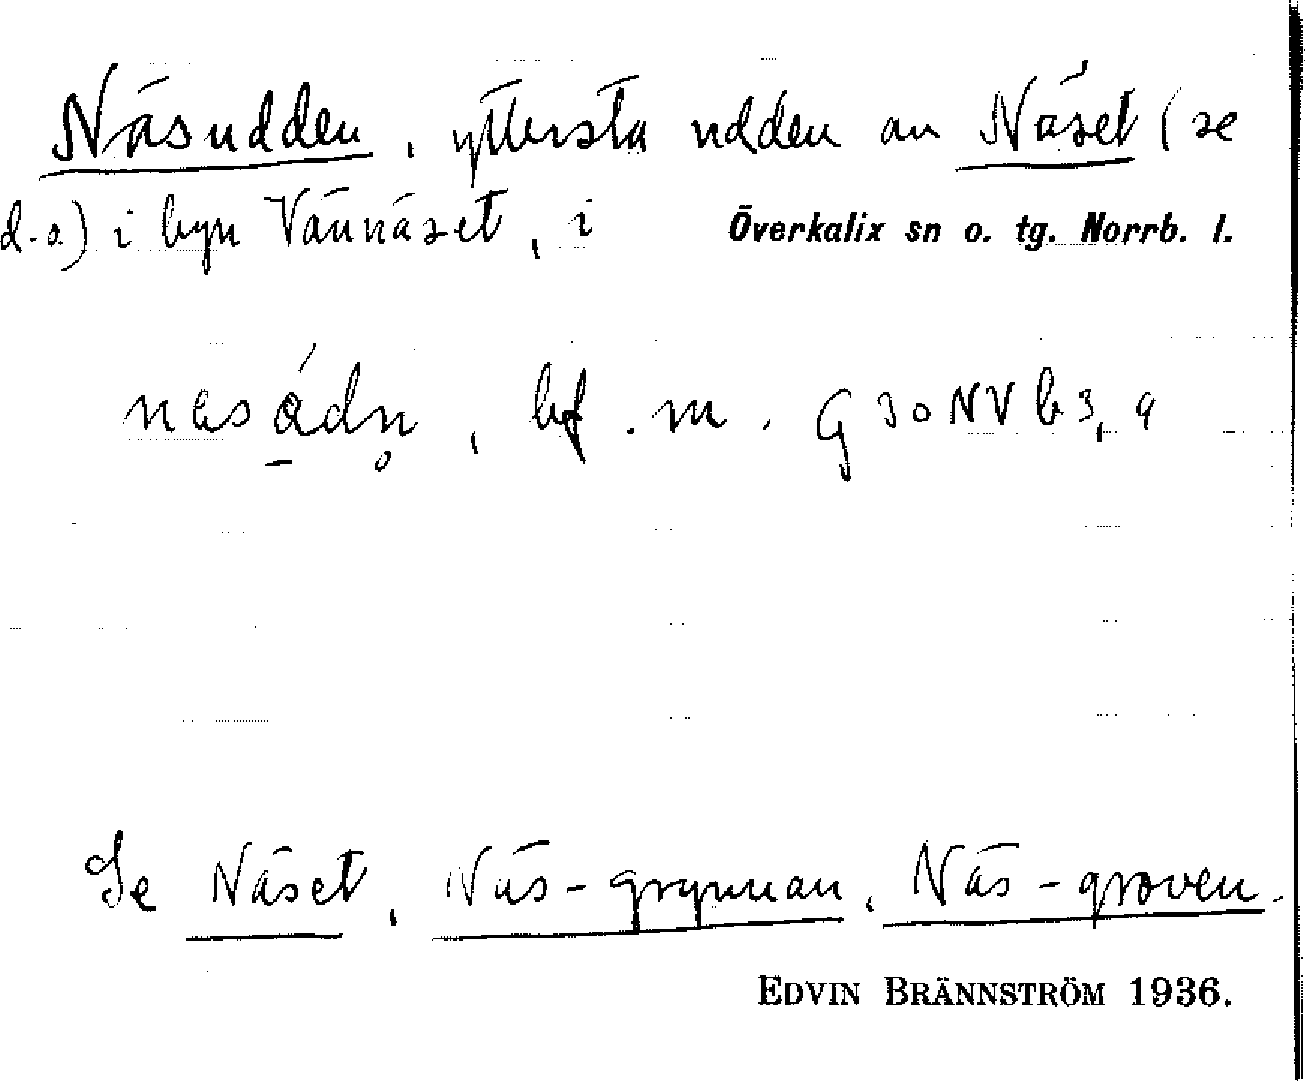 Näsudden, yttersta udden av Näset (se
d.o) i byn Vännäset, i Överkalix sn o. tg. Norrb. l.
bf. m. G 30 NV b 3, 9
Se Näset, Näs-grynnan, Näs-groven.
EDVIN BRÄNNSTRÖM 1936.